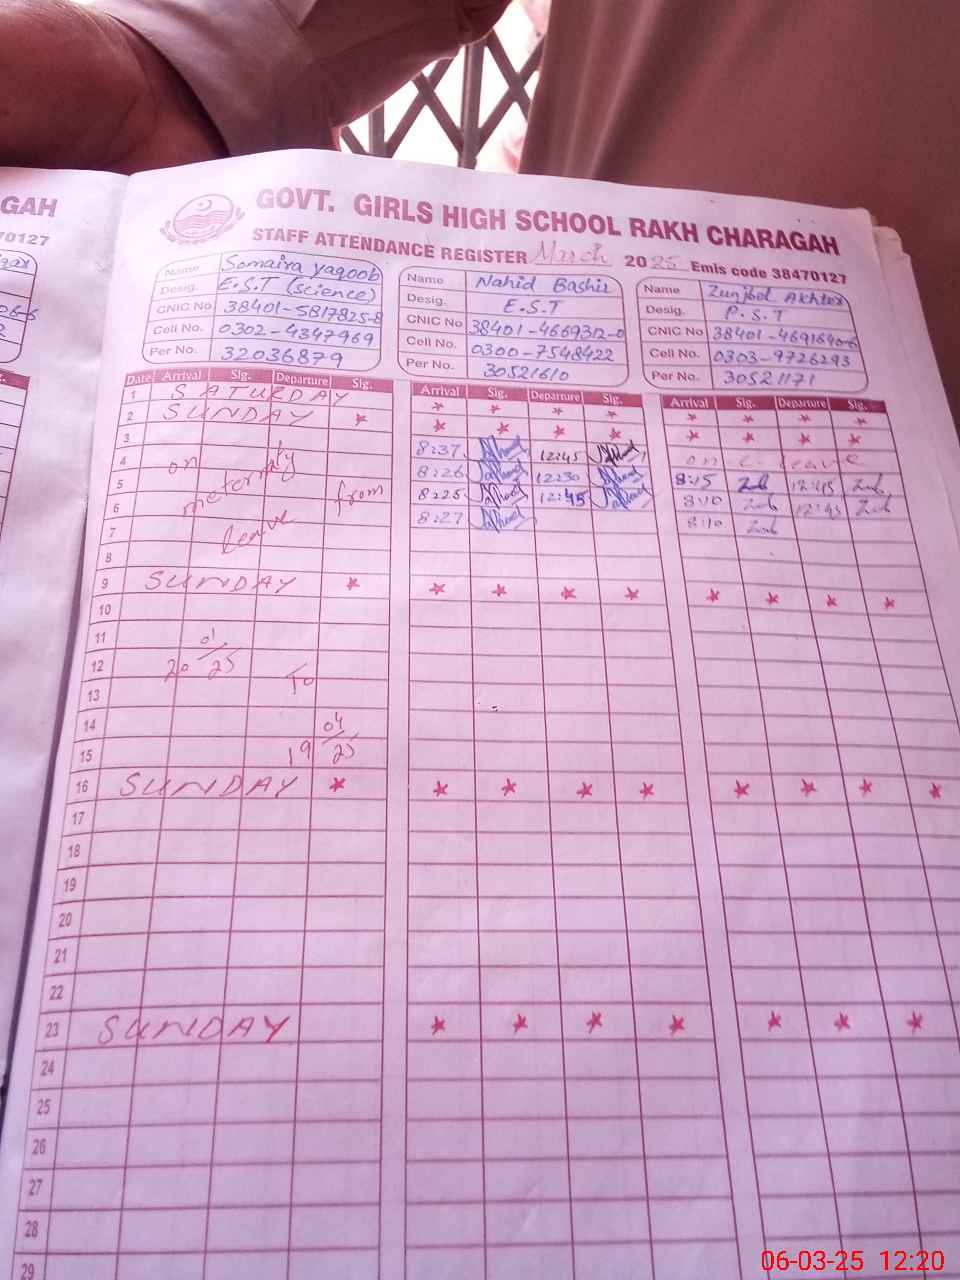 GAH
GOVT. GIRLS HIGH SCHOOL RAKH CHARAGAH
70127
STAFF ATTENDANCE REGISTER March 2025 Emis code 38470127
Name Somaira yaqoob
Desig. E.S.T (science)
CNIC No 38401-5817825-8
Cell No. 0302-4347969
Per No. 32036879
Name Nahid Bashir
Desig. E.S.T
CNIC No 38401-4669312-0
Cell No. 0300-7548422
Per No. 30521610
Name Akhter
Desig. P.S.T
CNIC No 38401-4691640-6
Cell No. 0303-9726293
Per No. 30521171
Date Arrival Sig. Departure Sig. Arrival Sig. Departure Sig. Arrival Sig. Departure Sig.
1 SATURDAY * * * * * * * *
2 SUNDAY * * * * * * * * *
3 8:37 12:45 on c-leave
4 on meternity 8:26 12:30 8:15 12:45
5 from 8:25 12:45 8:10 12:45
6 leave 8:27 8:10
7
8
9 SUNDAY * * * * * * * * *
10
11
12 20 01/25 To
13
14
15 19 04/25
16 SUNDAY * * * * * * * * *
17
18
19
20
21
22
23 SUNDAY * * * * * * *
24
25
26
27
28
29
06-03-25 12:20